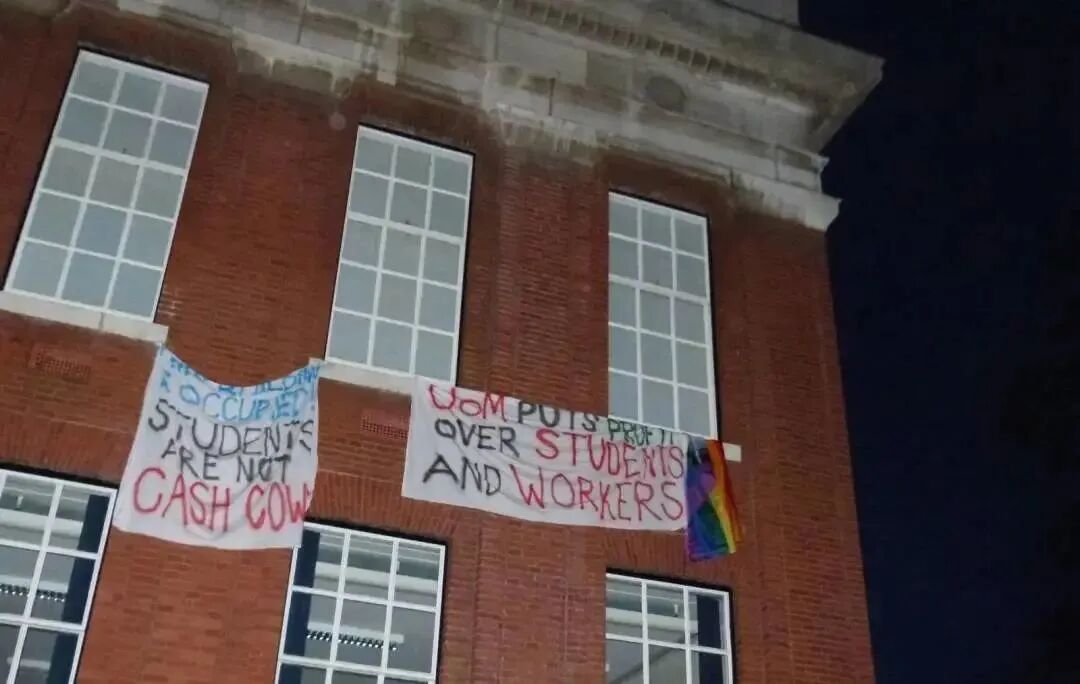 OCCUPIED!
STUDENTS
ARE NOT
CASH COW
UOM PUTS PROFIT
OVER STUDENTS
AND WORKERS